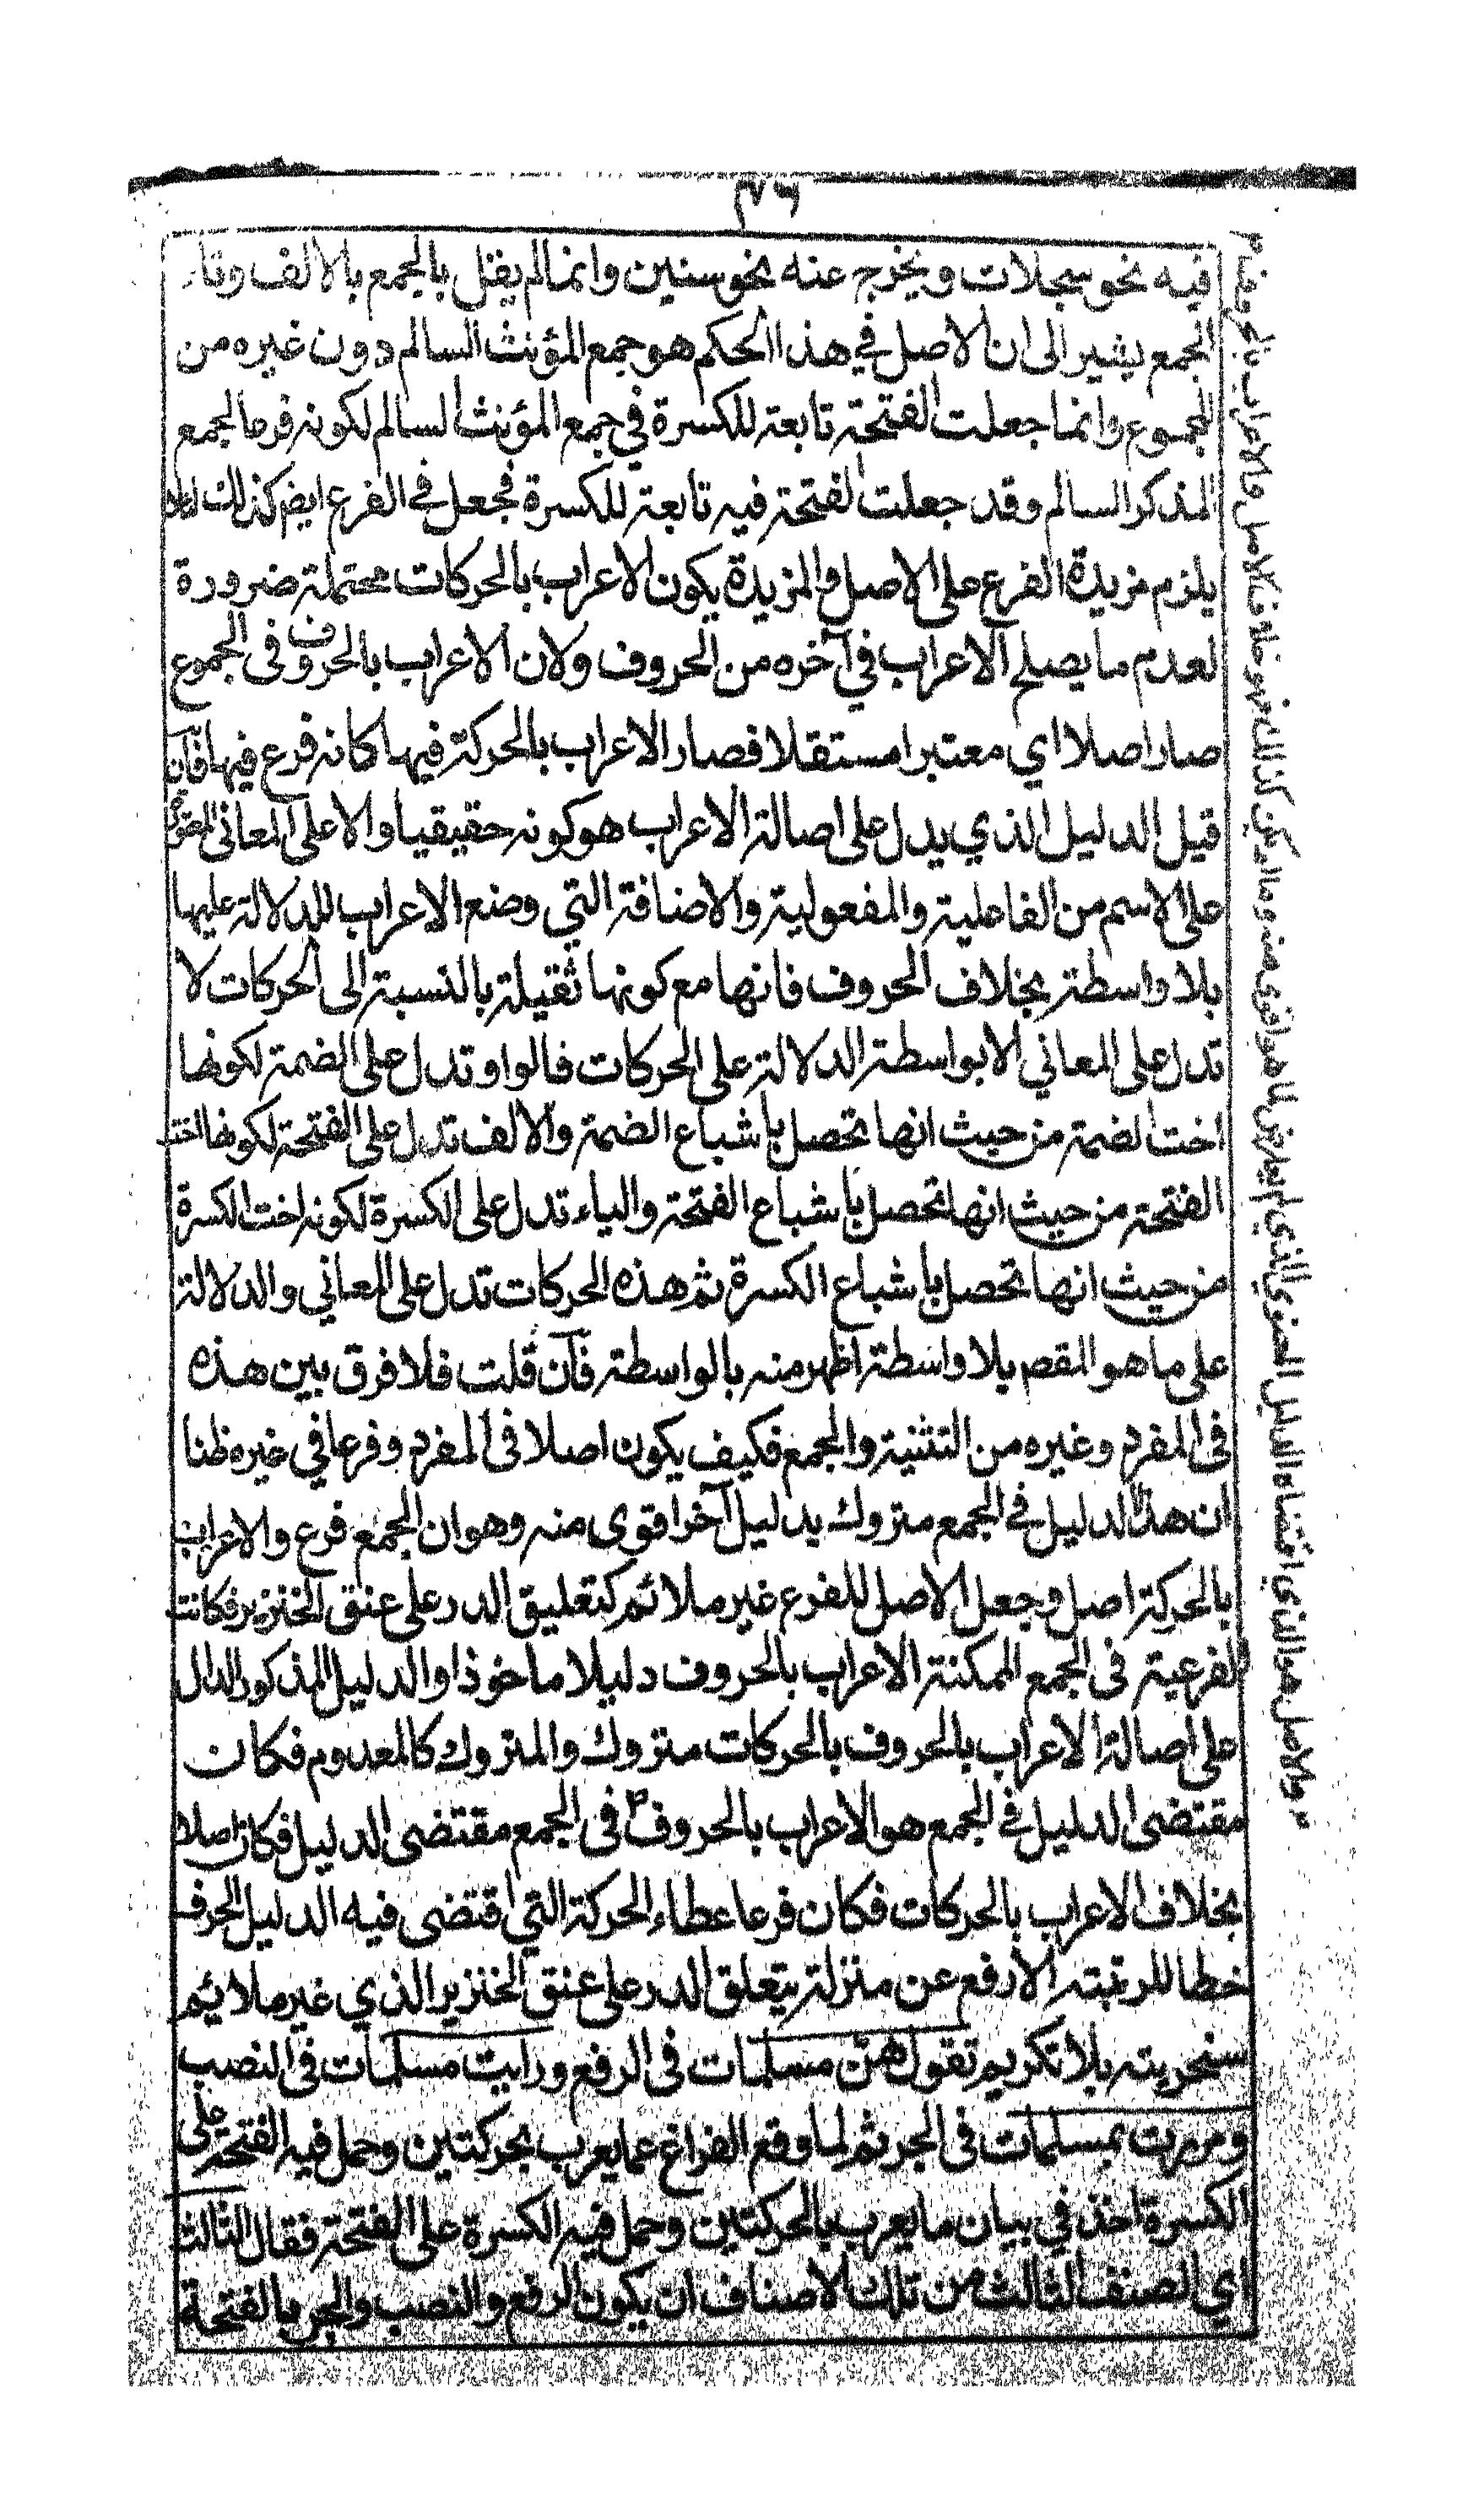 ٧٦
فيه نحو سجلات ويخرج عنه نحو سنين وانما لم يقل بالجمع بالالف وتاء
الجمع يشير الى ان الاصل في هذا الحكم هو جمع المؤنث السالم دون غيره من
الجموع وانما جعلت الفتحة تابعة للكسرة في جمع المؤنث السالم لكونه فرعا لجمع
المذكر السالم وقد جعلت الفتحة فيه تابعة للكسرة فجعل في الفرع ايض كذلك لئلا
يلزم مزيدة الفرع على الاصل والمزيدة يكون الاعراب بالحركات محتملة ضرورة
لعدم ما يصلح الاعراب في آخره من الحروف ولان الاعراب بالحروف فى الجموع
صار اصلا اي معتبرا مستقلا فصار الاعراب بالحركة فيها كانه فرع فيها فآن
قيل الدليل الذي يدل على اصالة الاعراب هو كونه حقيقيا والا على المعانى
على الاسم من الفاعلية والمفعولية والاضافة التي وضع الاعراب للدلالة عليها
بلا واسطة بخلاف الحروف فانها مع كونها ثقيلة بالنسبة الى الحركات لا
تدل على المعاني الا بواسطة الدلالة على الحركات فالواو تدل على الضمة لكونها
اخت الضمة من حيث انها تحصل باشباع الضمة والالف تدل على الفتحة لكونها اخت
الفتحة من حيث انها تحصل باشباع الفتحة والياء تدل على الكسرة لكونه اخت الكسرة
من حيث انها تحصل باشباع الكسرة ثم هذه الحركات تدل على المعاني والدلالة
على ما هو المقص بلا واسطة اظهر منه بالواسطة فآن قلت فلا فرق بين هذه
فى المفرد وغيره من التثنية والجمع فكيف يكون اصلا فى المفرد وفرعا في غيره ظنا
ان هذا الدليل في الجمع متروك بدليل آخر اقوى منه وهو ان الجمع فرع والاعراب
بالحركة اصل وجعل الاصل للفرع غير ملائم كتعليق الدر على عنق الخنزير فكانت
الفرعية فى الجمع الممكنة الاعراب بالحروف دليلا ماخوذا والدليل المذكور الدال
على اصالة الاعراب بالحروف بالحركات متروك والمتروك كالمعدوم فكان
مقتضى الدليل في الجمع هو الاعراب بالحروف فى الجمع مقتضى الدليل فكان اصلا
بخلاف الاعراب بالحركات فكان فرعا عطاء الحركة التي اقتضى فيه الدليل الحرف
خطا للرتبة الارفع عن منزلة يتعلق الدر على عنق الخنزير الذي غير ملائم
بلا تكريم تقول هنّ مسلمات فى الرفع ورايت مسلمات فى النصب
ومررت بمسلمات فى الجر ثم لما وقع الفراغ عما يعرب بحركتين وحمل فيه الفتحة على
الكسرة اخذ في بيان ما يعرب بالحركتين وحمل فيه الكسرة على الفتحة فقال الثالث
اي الصنف الثالث من تلك الاصناف ان يكون الرفع والنصب والجر بالفتحة